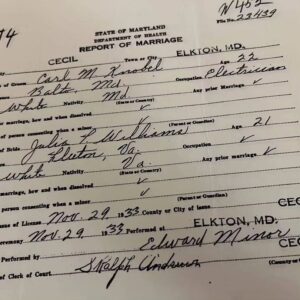 N 452
File No. 23439
STATE OF MARYLAND
DEPARTMENT OF HEALTH
REPORT OF MARRIAGE
CECIL Town or City ELKTON, MD.
of Groom Carl M Knobel Age 22
Balto, Md. Occupation Electrician
White Nativity Md (State or Country) Any prior marriage, ✓
marriage, how and when dissolved ✓
of person consenting when a minor ✓ (Parent or Guardian)
of Bride Julia P Williams Age 21
Va. Occupation ✓
White Nativity Va. (State or Country) Any prior marriage ✓
marriage, how and when dissolved ✓
person consenting when a minor ✓ (Parent or Guardian)
of License Nov. 29 1933 County or City of issue CEC
Ceremony Nov. 29 1933 Performed at ELKTON, MD.
Performed by Edward Minor
of Clerk of Court Ralph CEC